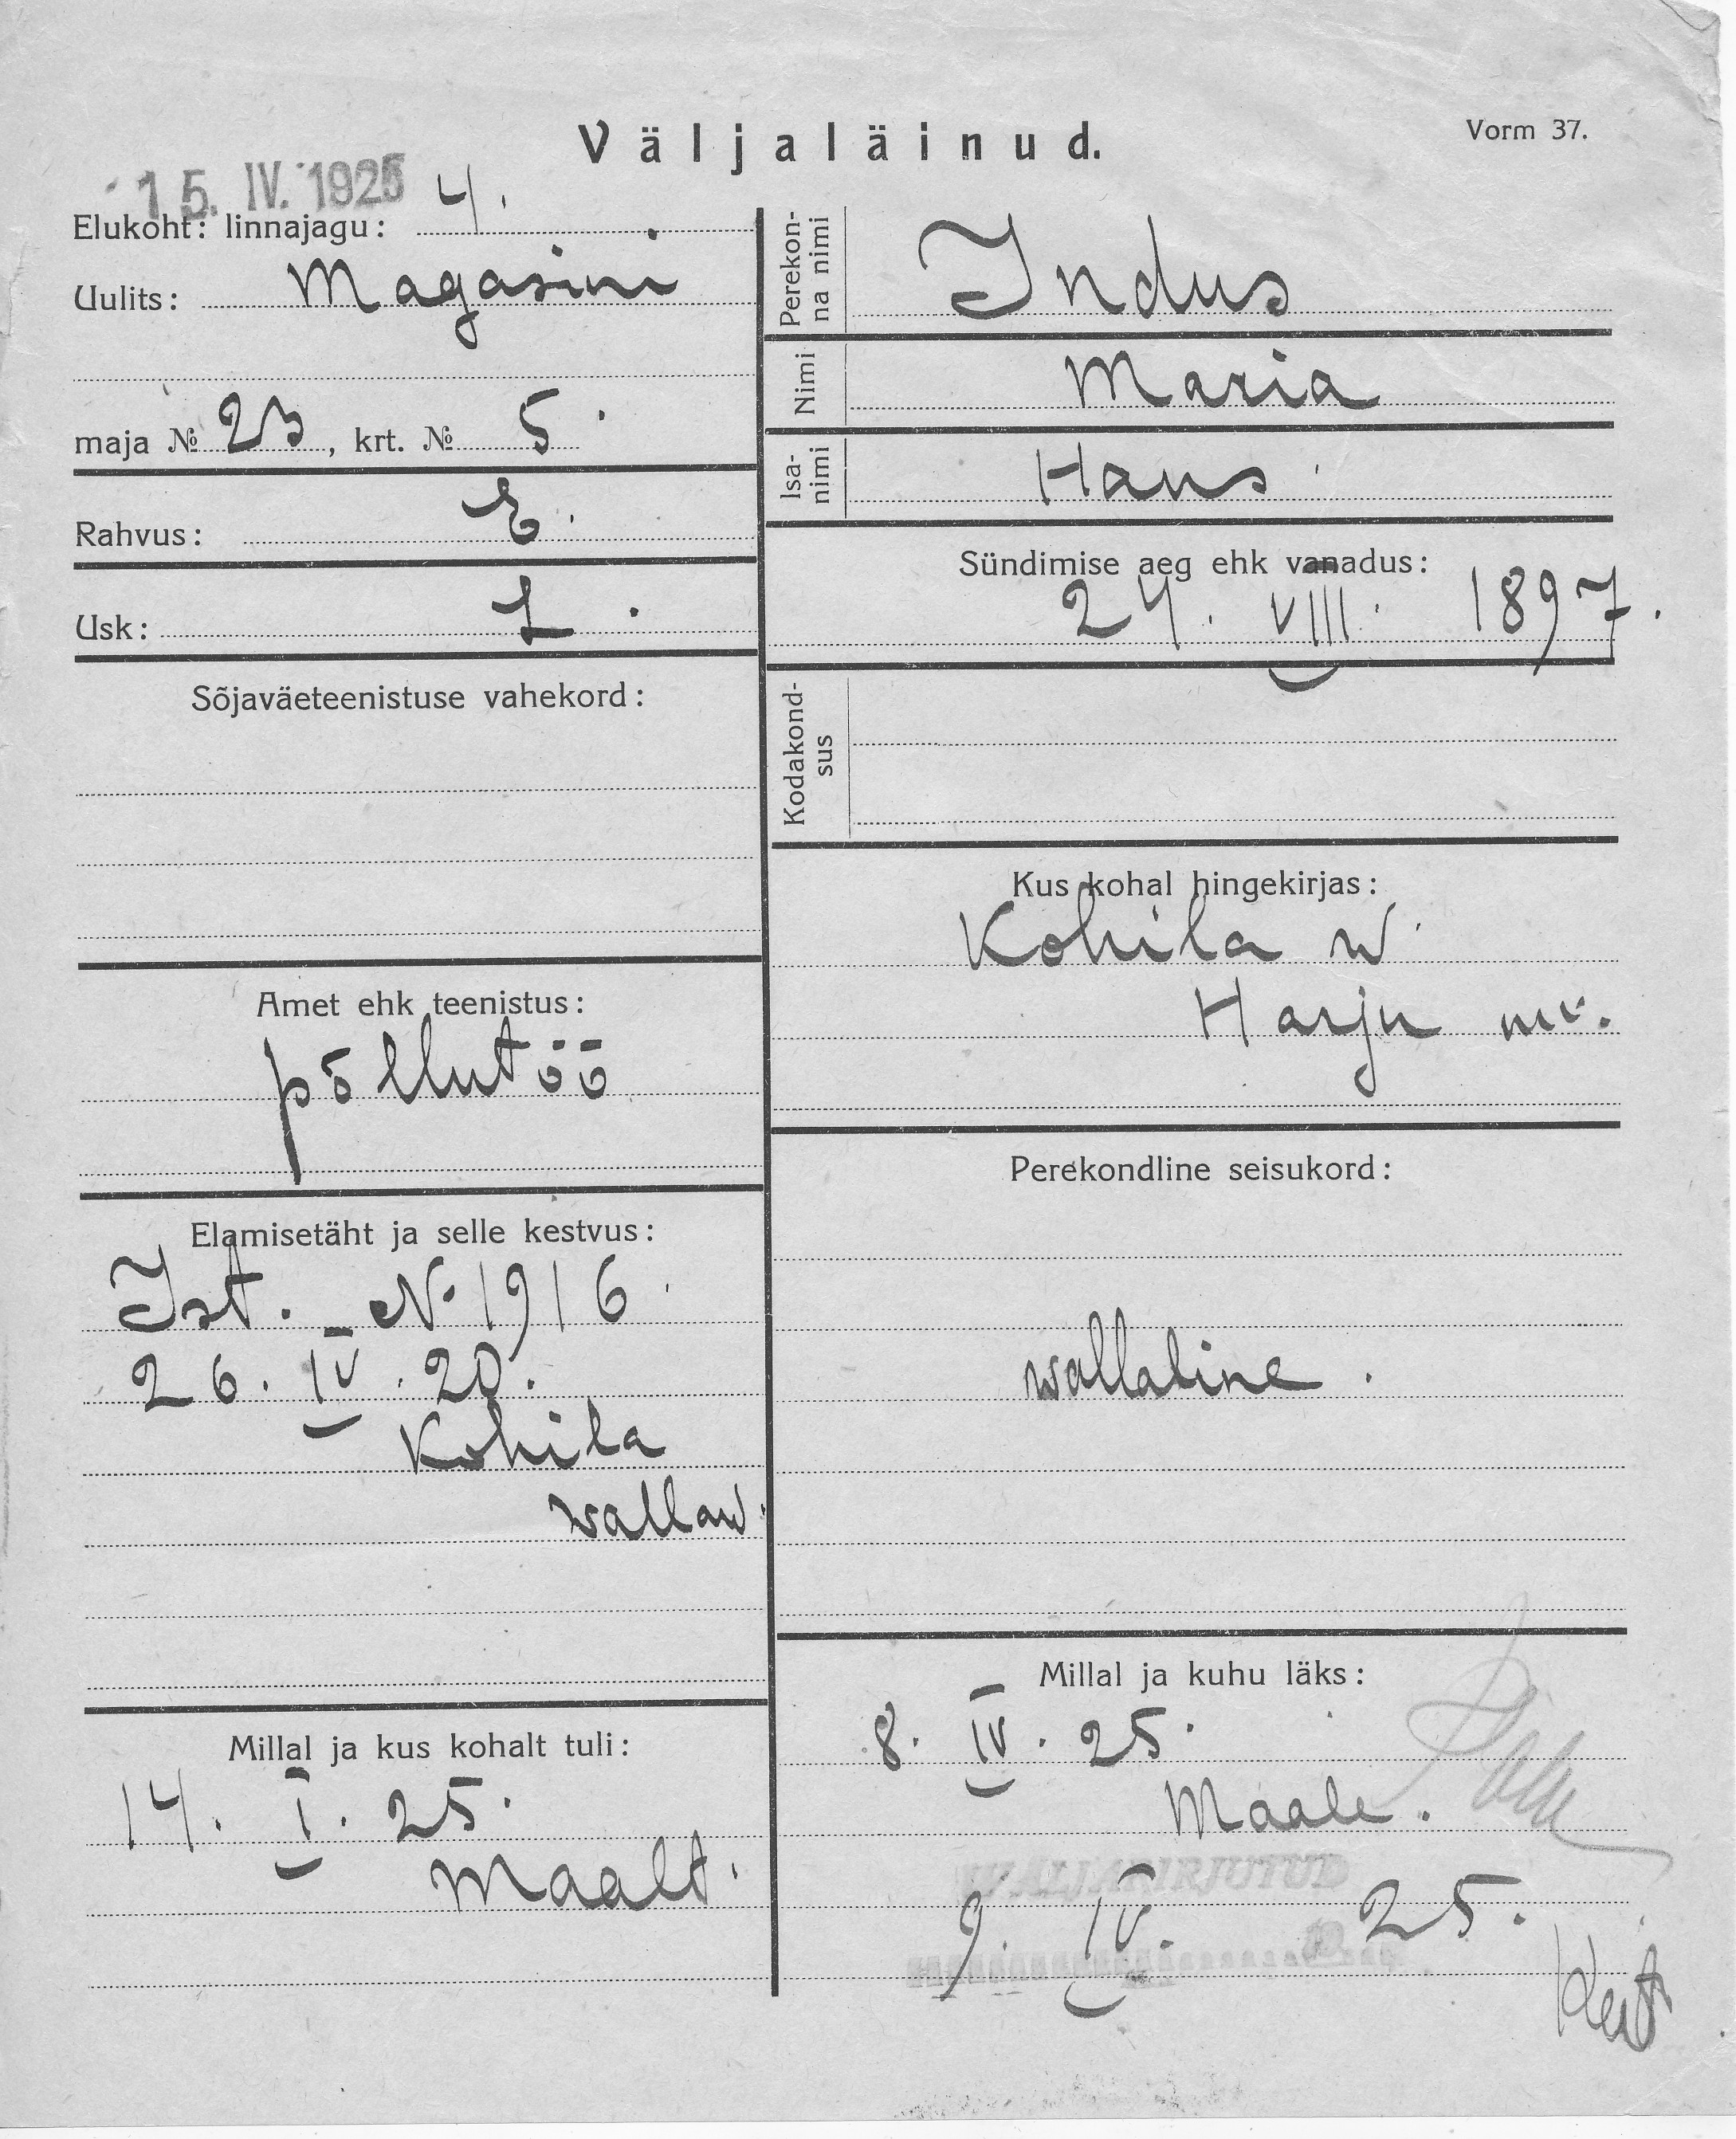 Väljaläinud.
Vorm 37.
15. IV. 1925
Elukoht: linnajagu: 4.
Uulits: Magasini
maja № 23, krt. № 5.
Rahvus: E.
Usk: L.
Sõjaväeteenistuse vahekord:
Amet ehk teenistus:
põllutöö
Elamisetäht ja selle kestvus:
Ist. № 1916.
26. IV. 20.
Kohila
wallaw.
Millal ja kus kohalt tuli:
14. I. 25.
Maalt.
Perekonna nimi
Indus
Nimi
Maria
Isanimi
Hans
Sündimise aeg ehk vanadus:
24. VIII. 1897.
Kodakondsus
Kus kohal hingekirjas:
Kohila w.
Harju mk.
Perekondline seisukord:
wallaline.
Millal ja kuhu läks:
8. IV. 25.
Maale.
WÄLJAKIRJUTUD
9. IV. 25.